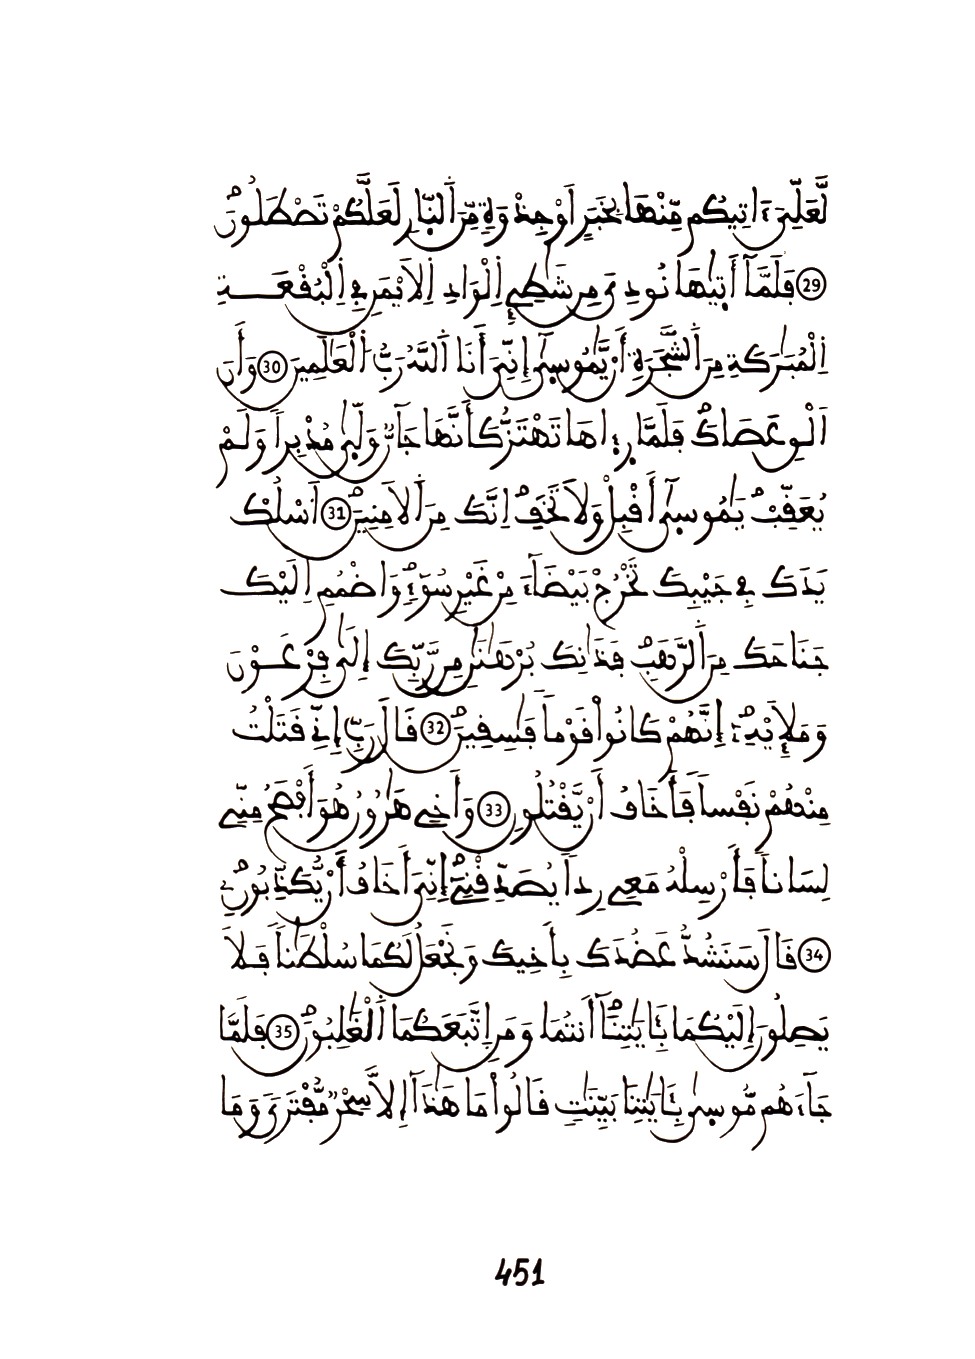 لَّعَلِّيَ ءَاتِيكُم مِّنْهَا بِخَبَرٍ اَوْ جِذْوَةٖ مِّنَ اَ۬لنّ۪ارِ لَعَلَّكُمْ تَصْطَلُونَۖ
29 فَلَمَّآ أَت۪يٰهَا نُودِيَ مِن شَٰطِےِٕ اِ۬لْوَادِ اِ۬لَايْمَنِ فِے اِ۬لْبُقْعَةِ
اِ۬لْمُبَٰرَكَةِ مِنَ اَ۬لشَّجَرَةِ أَنْ يَّٰمُوس۪ىٰٓ إِنِّيَ أَنَا اَ۬للَّهُ رَبُّ اُ۬لْعَٰلَمِينَ 30 وَأَنَ
اَلْقِ عَصَاكَۖ فَلَمَّا ر۪ء۪اهَا تَهْتَزُّ كَأَنَّهَا جَآنّٞ وَلّ۪ىٰ مُدْبِراٗ وَلَمْ
يُعَقِّبْۖ يَٰمُوس۪ىٰٓ أَقْبِلْ وَلَا تَخَفِۖ اِنَّكَ مِنَ اَ۬لَامِنِينَۖ 31 اَ۟سْلُكْ
يَدَكَ فِے جَيْبِكَ تَخْرُجْ بَيْضَآءَ مِنْ غَيْرِ سُوٓءٖۖ وَاضْمُمِ اِلَيْكَ
جَنَاحَكَ مِنَ اَ۬لرَّهَبِۖ فَذَٰنِكَ بُرْهَٰنَٰنِ مِن رَّبِّكَ إِلَىٰ فِرْعَوْنَ
وَمَلَإِيْهِۦٓۖ إِنَّهُمْ كَانُواْ قَوْماٗ فَٰسِقِينَۖ 32 قَالَ رَبِّ إِنِّے قَتَلْتُ
مِنْهُمْ نَفْساٗ فَأَخَافُ أَنْ يَّقْتُلُونِ 33 وَأَخِے هَٰرُونُ هُوَ أَفْصَحُ مِنِّے
لِسَاناٗ فَأَرْسِلْهُ مَعِے رِداٗ يُصَدِّقْنِےٓۖ إِنِّيَ أَخَافُ أَنْ يُّكَذِّبُونِۦۖ
34 قَالَ سَنَشُدُّ عَضُدَكَ بِأَخِيكَ وَنَجْعَلُ لَكُمَا سُلْطَٰناٗ فَلَا
يَصِلُونَ إِلَيْكُمَا بِـَٔايَٰتِنَآۖ أَنتُمَا وَمَنِ اِ۪تَّبَعَكُمَا اَ۬لْغَٰلِبُونَۖ 35 فَلَمَّا
جَآءَهُم مُّوس۪ىٰ بِـَٔايَٰتِنَا بَيِّنَٰتٖ قَالُواْ مَا هَٰذَآ إِلَّا سِحْرٞ مُّفْتَرىٗ وَمَا
451